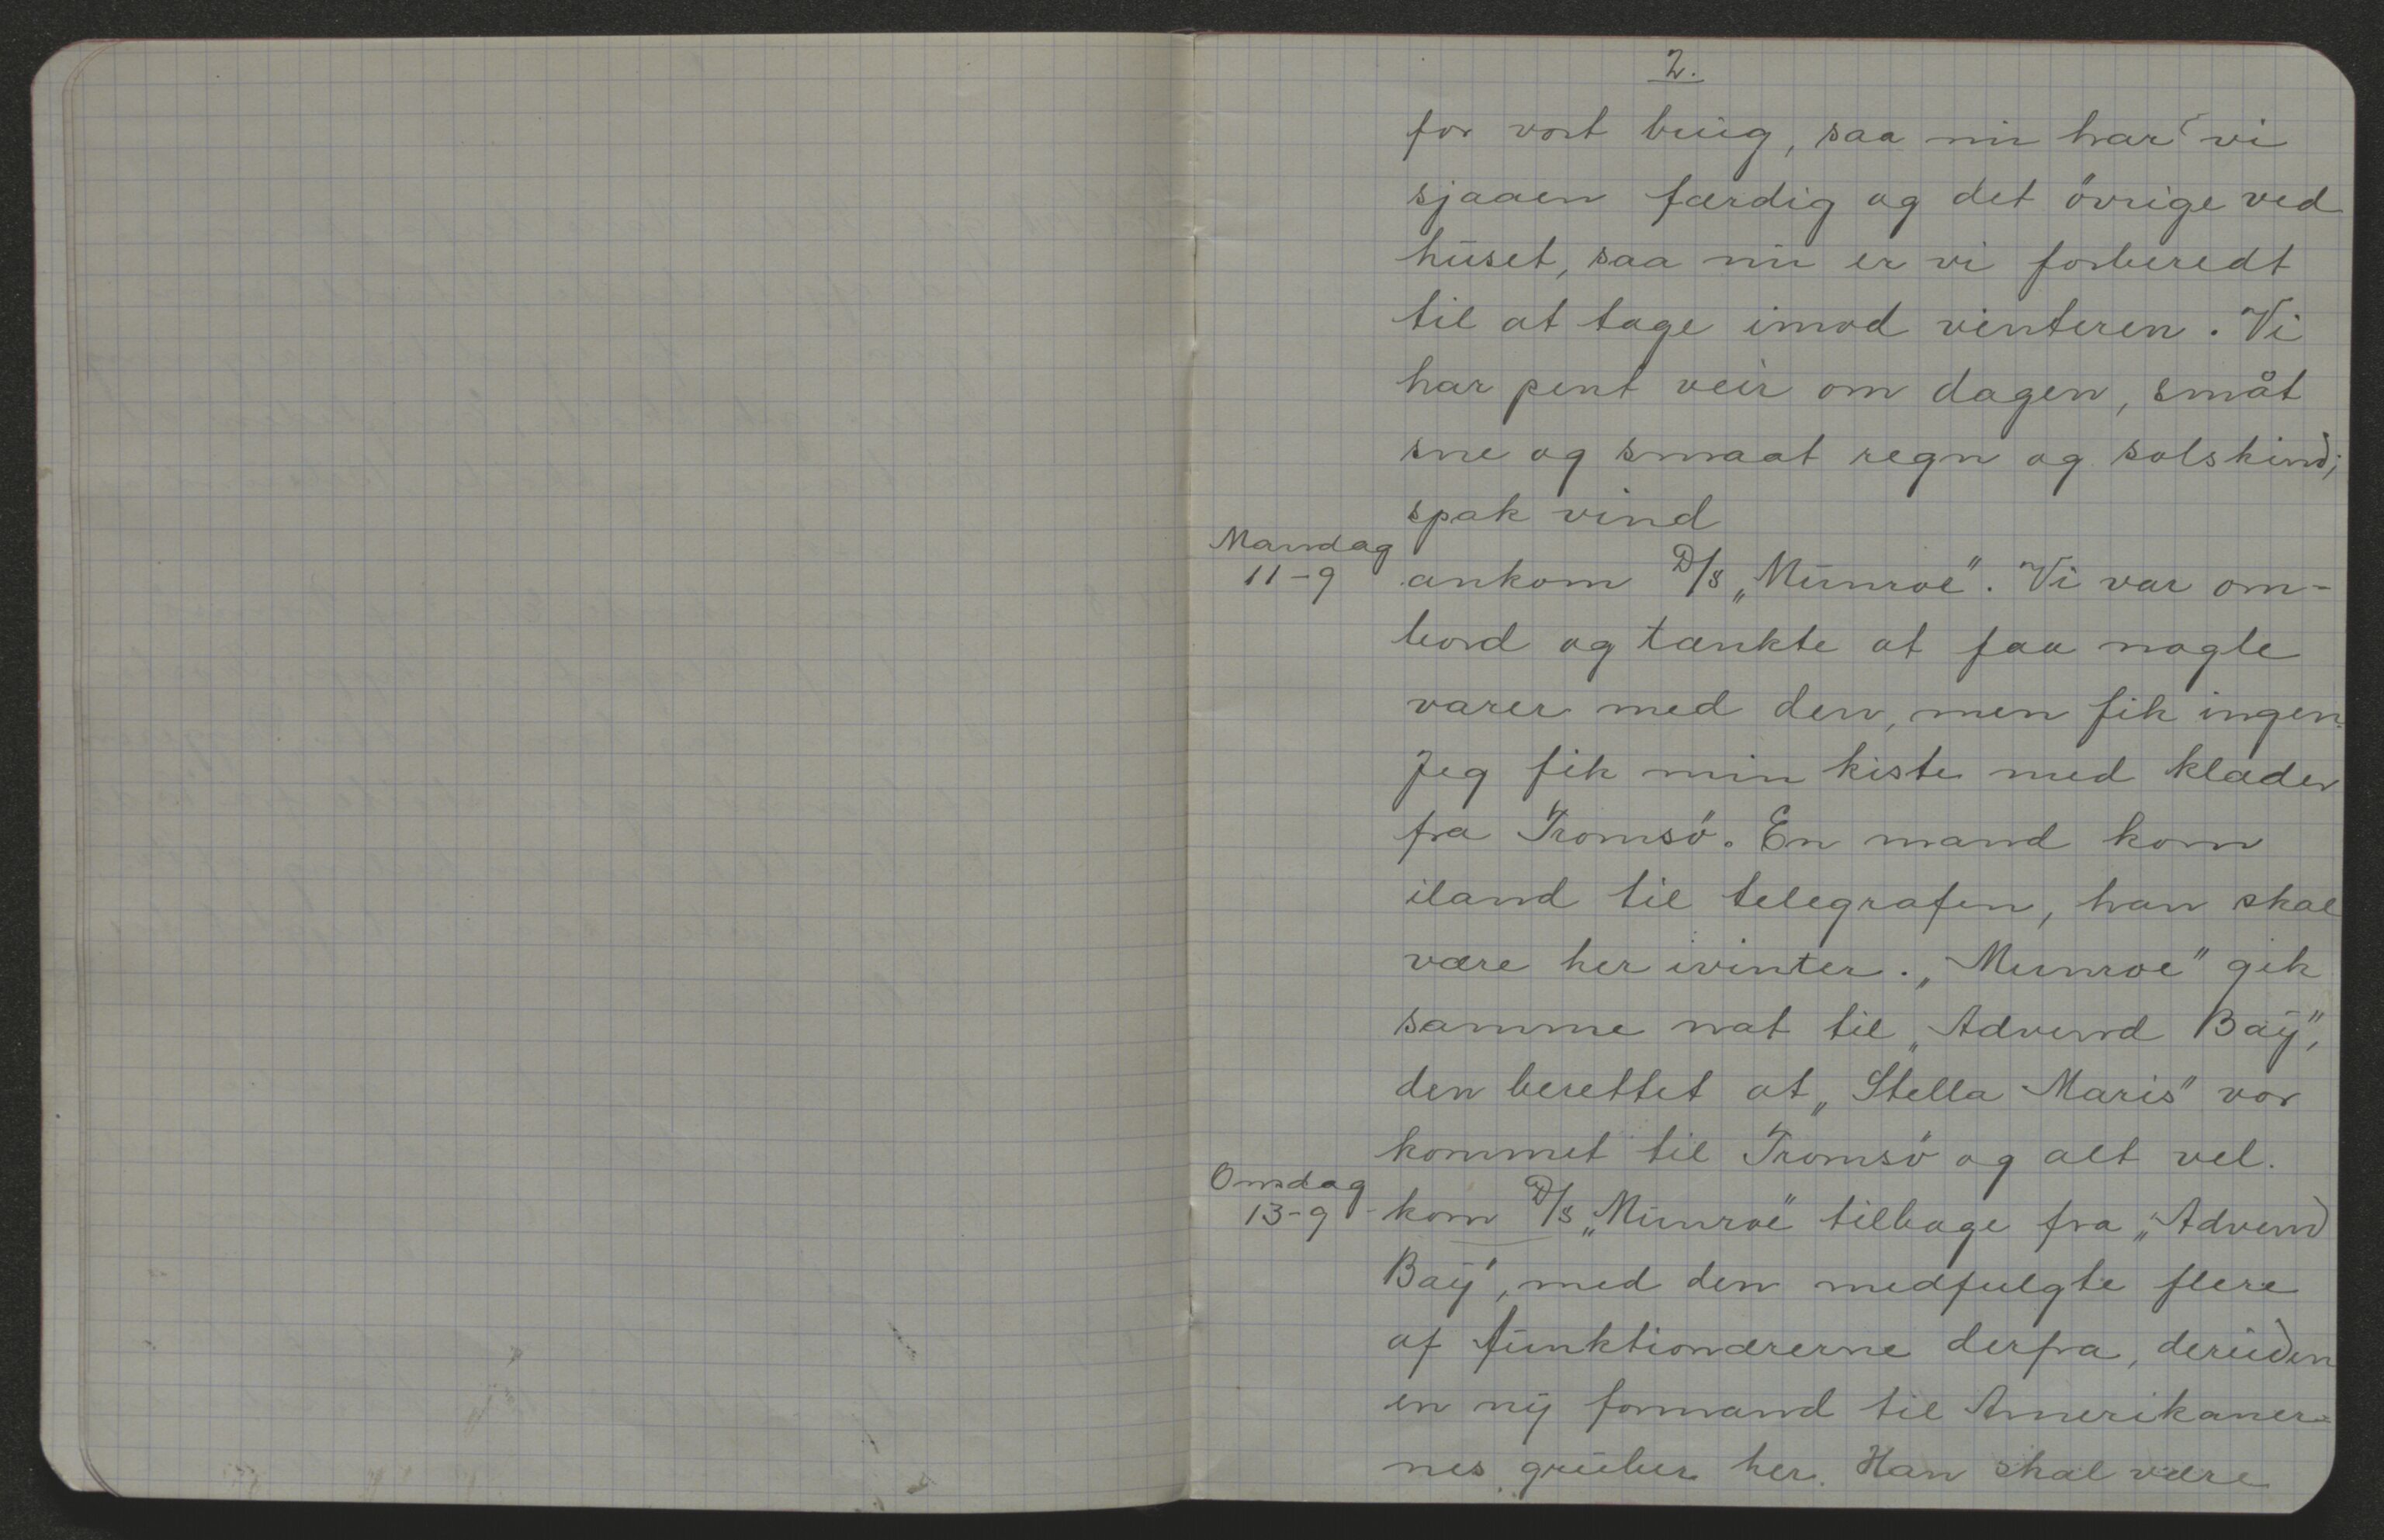 2.
for vort brug, saa nu har vi
sjaaen færdig og det övrige ved
huset, saa nu er vi forberedt
til at tage imod vinteren. Vi
har pent veir om dagen, småt
sne og smaat regn og solskind;
spak vind
Mandag
11-9 ankom D/S „Munroe". Vi var om-
bord og tænkte at faa nogle
varer med den, men fik ingen.
Jeg fik min kiste med klæder
fra Tromsö. En mand kom
iland til telegrafen, han skal
være her ivinter. „Munroe" gik
samme nat til „Advend Bay",
den berettet at „Stella Maris" var
kommet til Tromsö og alt vel.
Onsdag
13-9 - kom D/S „Munroe" tilbage fra „Advend
Bay", med den medfulgte flere
af funktionærerne derfra, deriiden
en ny formand til Amerikaner-
nes gruber her. Han skal være